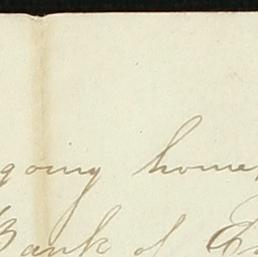 going home,
Bank of